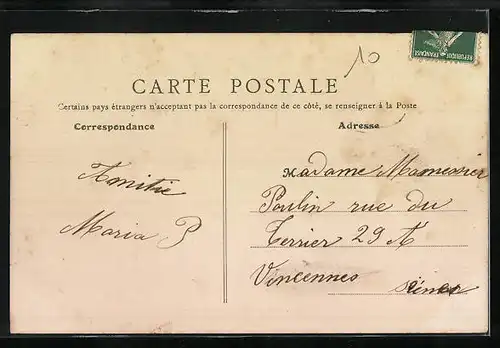 10
REPUBLIQUE FRANÇAISE
CARTE POSTALE
Certains pays étrangers n'acceptant pas la correspondance de ce côté, se renseigner à la Poste
Correspondance
Adresse
Amitié
Maria P
Madame Mamessier
Poulin rue du
Terrier 29 A
Vincennes
Seine